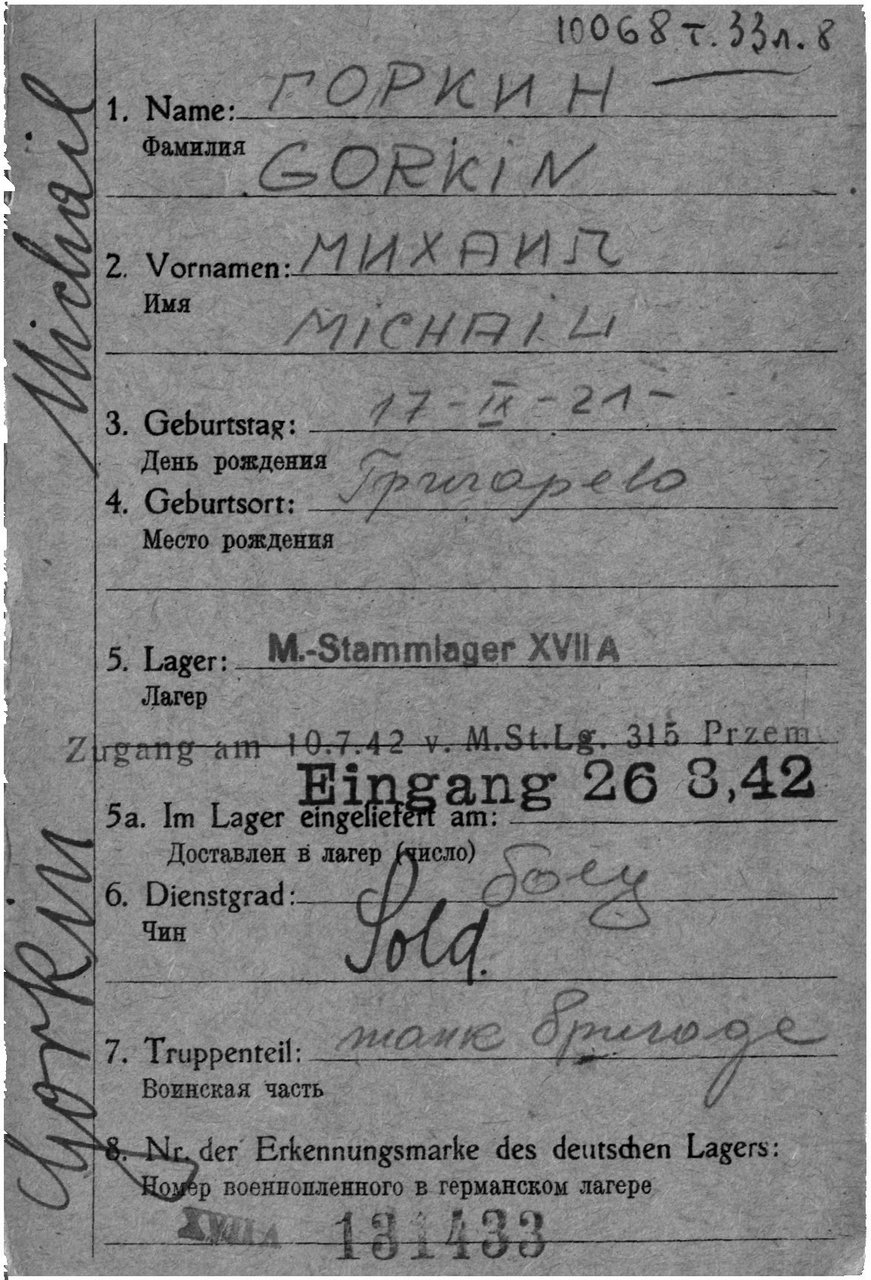 10068 т. 33 л. 8
1. Name: ГОРКИН
Фамилия
GORKIN
2. Vornamen: МИХАИЛ
Имя
MICHAIL
3. Geburtstag: 17-IX-21-
День рождения
4. Geburtsort: Григорево
Место рождения
5. Lager: M.-Stammlager XVII A
Лагер
Zugang am 10.7.42 v. M.St.Lg. 315 Przem
Eingang 26 8,42
5a. Im Lager eingeliefert am:
Доставлен в лагер (число)
6. Dienstgrad: боец
Чин
Sold.
7. Truppenteil: танк бригаде
Воинская часть
8. Nr. der Erkennungsmarke des deutschen Lagers:
Номер военнопленного в германском лагере
XVII A 131433
Gorkin Michail